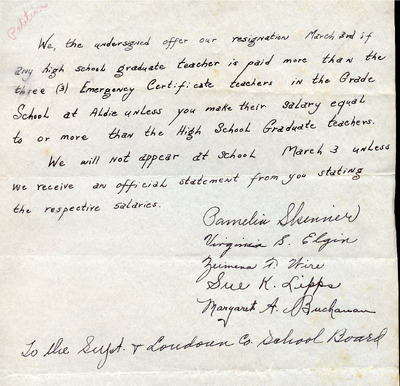 Petition
We, the undersigned offer our resignation March 3rd if
any high school graduate teacher is paid more than the
three (3) Emergency Certificate teachers in the Grade
School at Aldie unless you make their salary equal
to or more than the High School Graduate teachers.
We will not appear at school March 3 unless
we receive an official statement from you stating
the respective salaries.
Pamelia Skinner
Virginia S. Elgin
Zeimena F. Wire
Sue K. Lipps
Margaret A. Buchanan
To the Supt. & Loudoun Co School Board